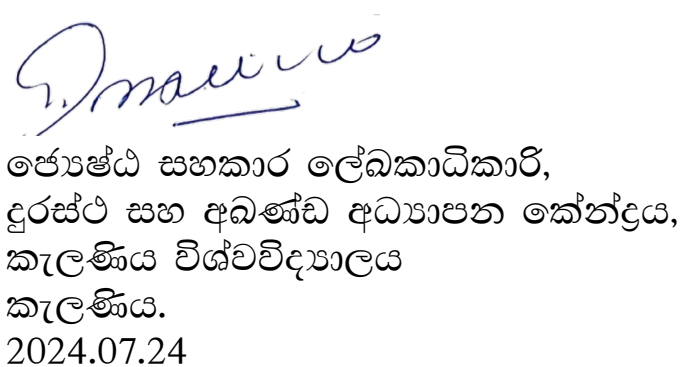 ජ්‍යෙෂ්ඨ සහකාර ලේඛකාධිකාරි,
දුරස්ථ සහ අඛණ්ඩ අධ්‍යාපන කේන්ද්‍රය,
කැලණිය විශ්වවිද්‍යාලය
කැලණිය.
2024.07.24